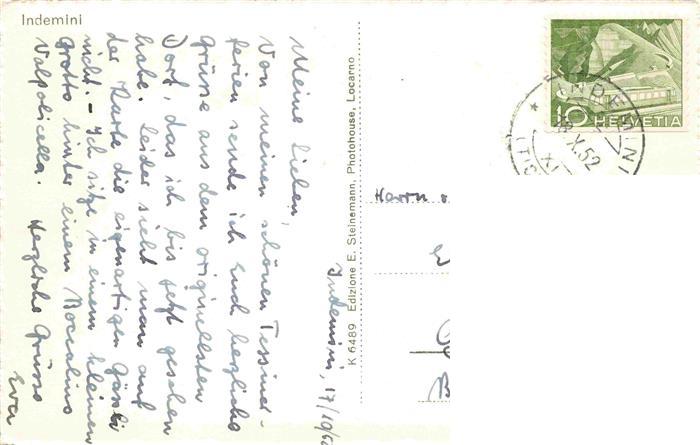 Indemini
Indemini, 17/10/52
Meine Lieben,
Von meinen schönen Tessiner-
ferien sende ich Euch herzliche
Grüsse aus dem originellsten
Dorf, das ich bis jetzt gesehen
habe. Leider sieht man auf
der Karte die eigenartigen Gässli
nicht. - Ich sitze in einem kleinen
Grotto hinter einem Boccalino
Valpolicella. Herzliche Grüsse
Eva
K 6489 Edizione E. Steinemann, Photohouse, Locarno
10 HELVETIA
X.52
Herrn